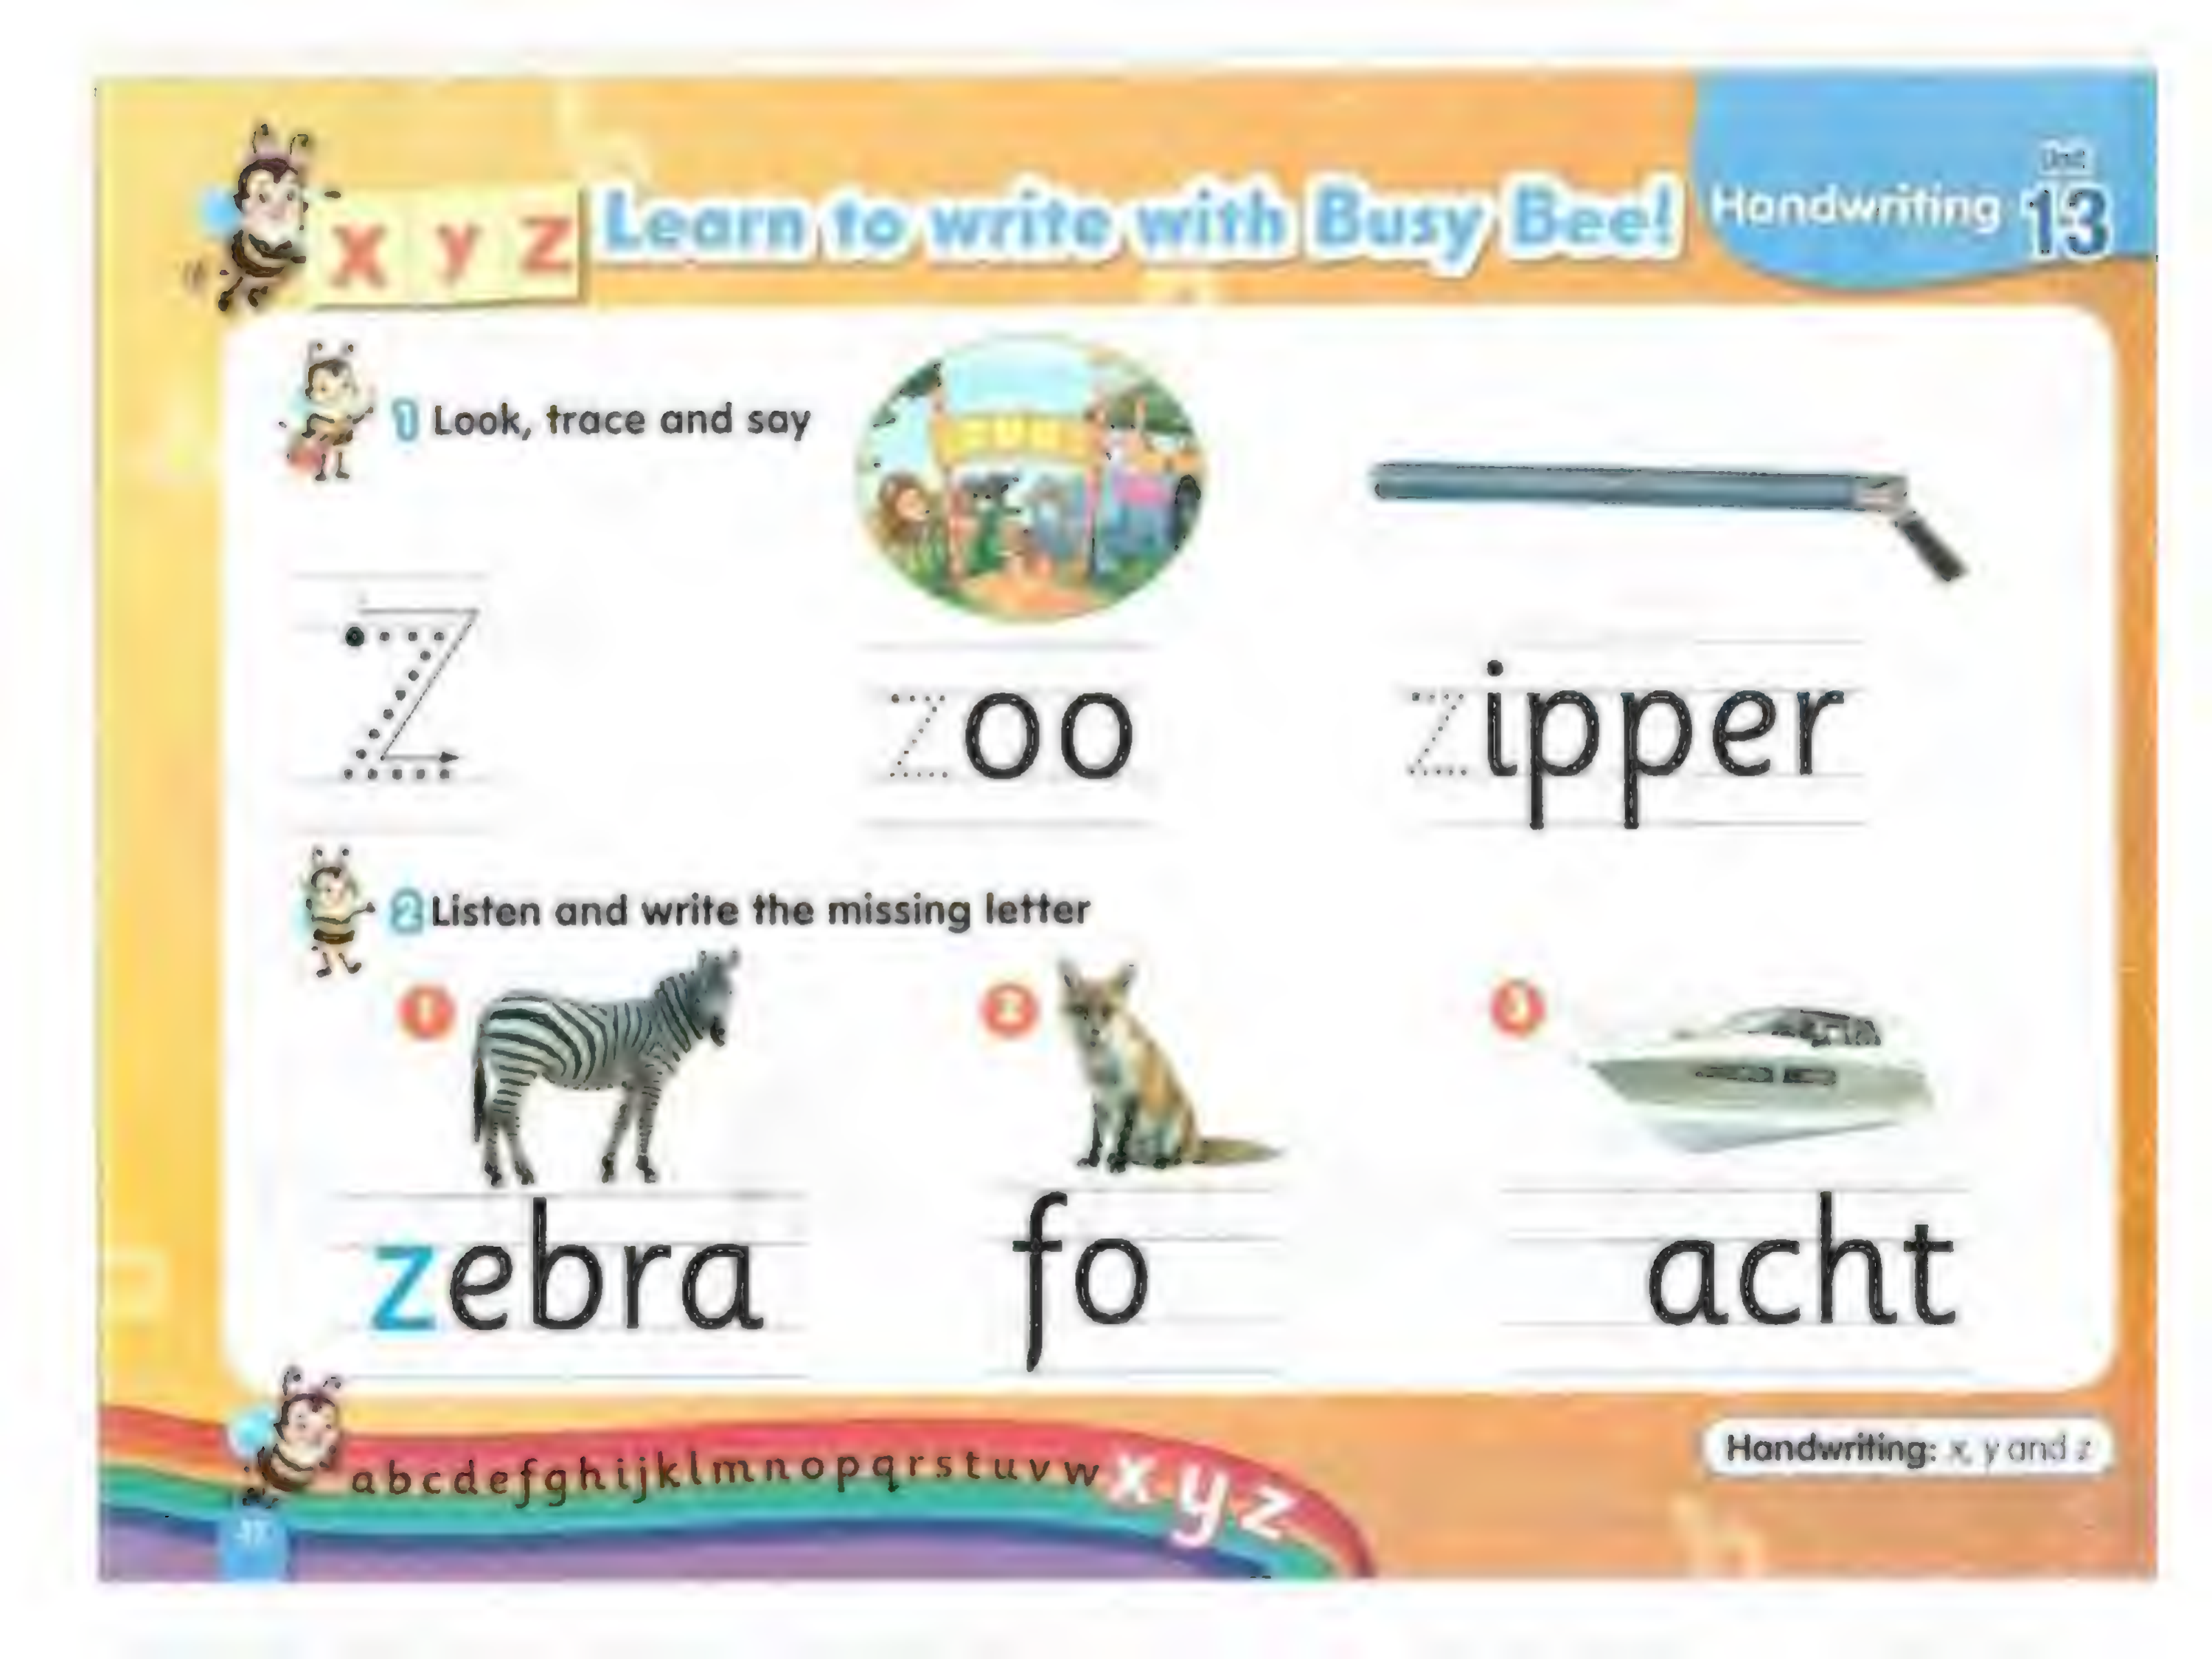 x y z
Learn to write with Busy Bee!
Handwriting
Unit
13
1 Look, trace and say
ZOO
z
zoo
zipper
2 Listen and write the missing letter
1
2
3
zebra
fo
acht
a b c d e f g h i j k l m n o p q r s t u v w x y z
Handwriting: x, y and z